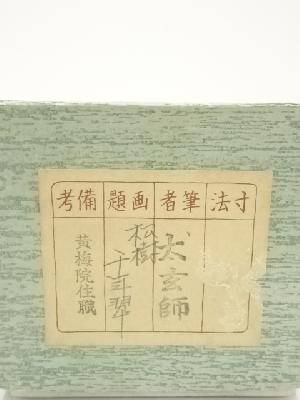 寸法
筆者
太玄師
画題
松樹千年翠
備考
黄梅院住職